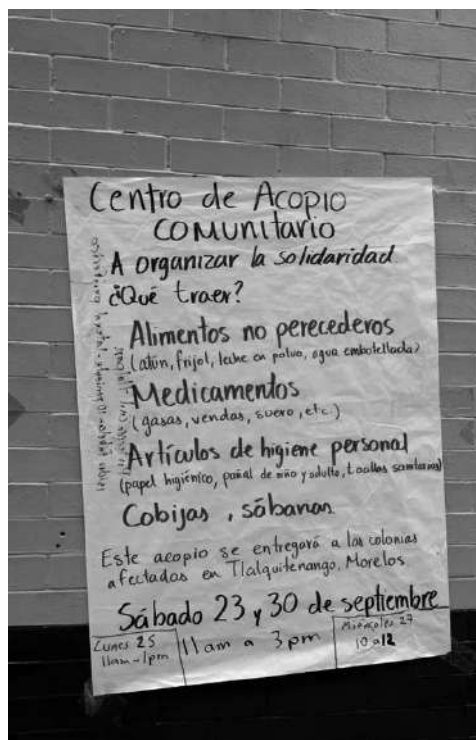 Centro de Acopio
COMUNITARIO
A organizar la solidaridad
¿Qué traer?
Alimentos no perecederos
(atún, frijol, leche en polvo, agua embotellada)
Medicamentos
(gasas, vendas, suero, etc.)
Artículos de higiene personal
(papel higiénico, pañal de niño y adulto, toallas sanitarias)
Cobijas, sábanas
Este acopio se entregará a las colonias
afectadas en Tlalquitenango, Morelos
Sábado 23 y 30 de septiembre
11am a 3pm
Lunes 25
11am - 1pm
Miércoles 27
10 a 12